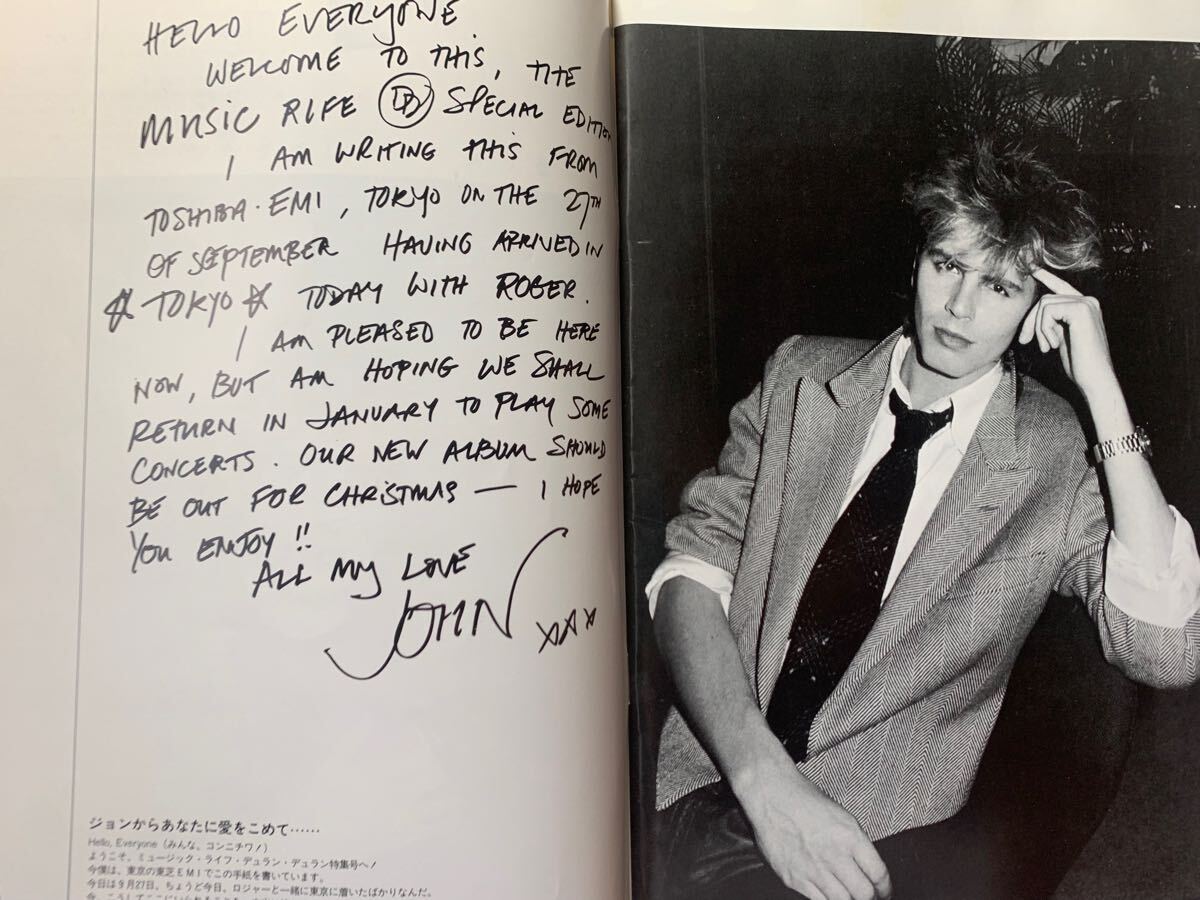 HELLO EVERYONE
WELCOME TO THIS, THE
MUSIC RIFE DD SPECIAL EDITION
I AM WRITING THIS FROM
TOSHIBA·EMI, TOKYO ON THE 27TH
OF SEPTEMBER HAVING ARRIVED IN
☆ TOKYO ☆ TODAY WITH ROGER.
I AM PLEASED TO BE HERE
NOW, BUT AM HOPING WE SHALL
RETURN IN JANUARY TO PLAY SOME
CONCERTS. OUR NEW ALBUM SHOULD
BE OUT FOR CHRISTMAS — I HOPE
YOU ENJOY !!
ALL MY LOVE
JOHN XXX
ジョンからあなたに愛をこめて……
Hello, Everyone（みんな、コンニチワ！）
ようこそ、ミュージック・ライフ・デュラン・デュラン特集号へ！
今僕は、東京の東芝EMIでこの手紙を書いています。
今日は9月27日。ちょうど今日、ロジャーと一緒に東京に着いたばかりなんだ。